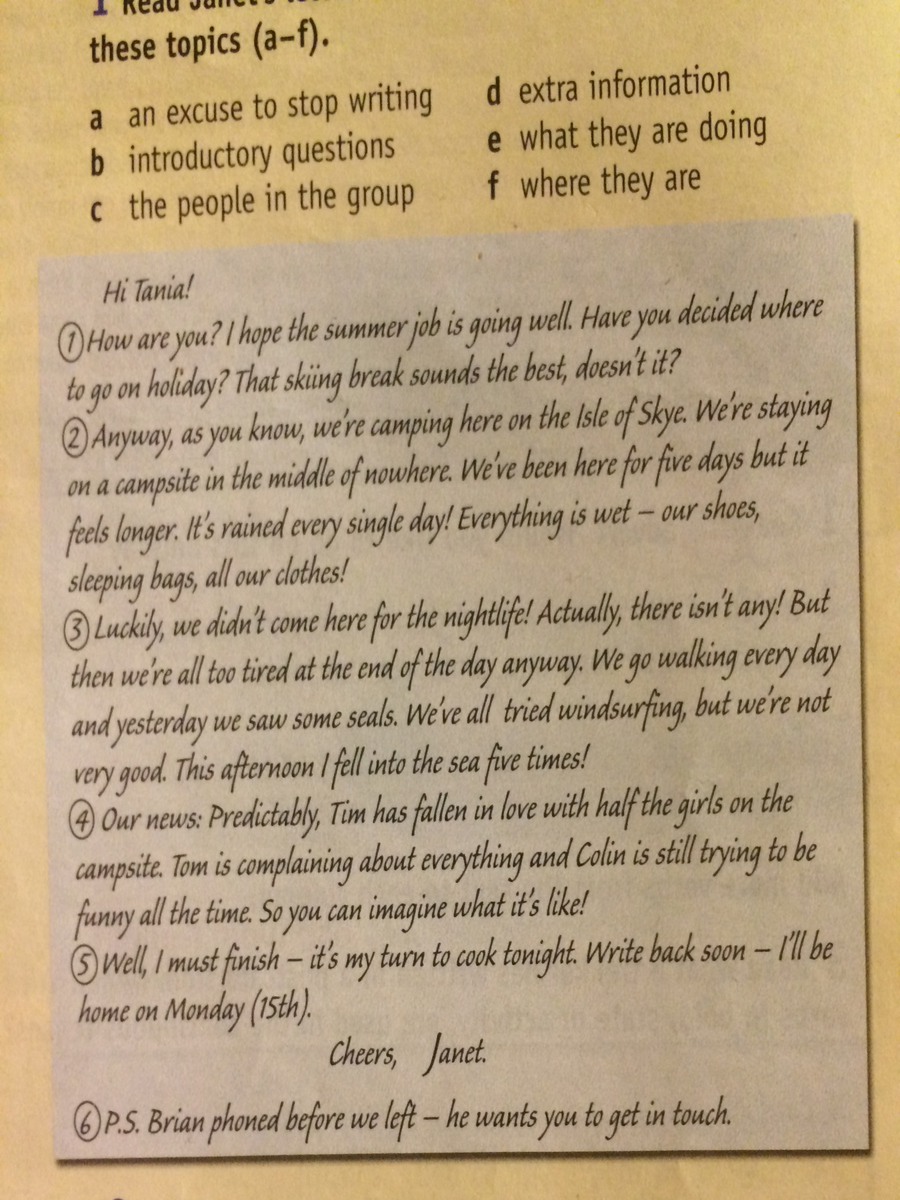 1 Read Janet's
these topics (a–f).
a an excuse to stop writing
b introductory questions
c the people in the group
d extra information
e what they are doing
f where they are
Hi Tania!
① How are you? I hope the summer job is going well. Have you decided where
to go on holiday? That skiing break sounds the best, doesn't it?
② Anyway, as you know, we're camping here on the Isle of Skye. We're staying
on a campsite in the middle of nowhere. We've been here for five days but it
feels longer. It's rained every single day! Everything is wet – our shoes,
sleeping bags, all our clothes!
③ Luckily, we didn't come here for the nightlife! Actually, there isn't any! But
then we're all too tired at the end of the day anyway. We go walking every day
and yesterday we saw some seals. We've all tried windsurfing, but we're not
very good. This afternoon I fell into the sea five times!
④ Our news: Predictably, Tim has fallen in love with half the girls on the
campsite. Tom is complaining about everything and Colin is still trying to be
funny all the time. So you can imagine what it's like!
⑤ Well, I must finish – it's my turn to cook tonight. Write back soon – I'll be
home on Monday (15th).
Cheers, Janet.
⑥ P.S. Brian phoned before we left – he wants you to get in touch.